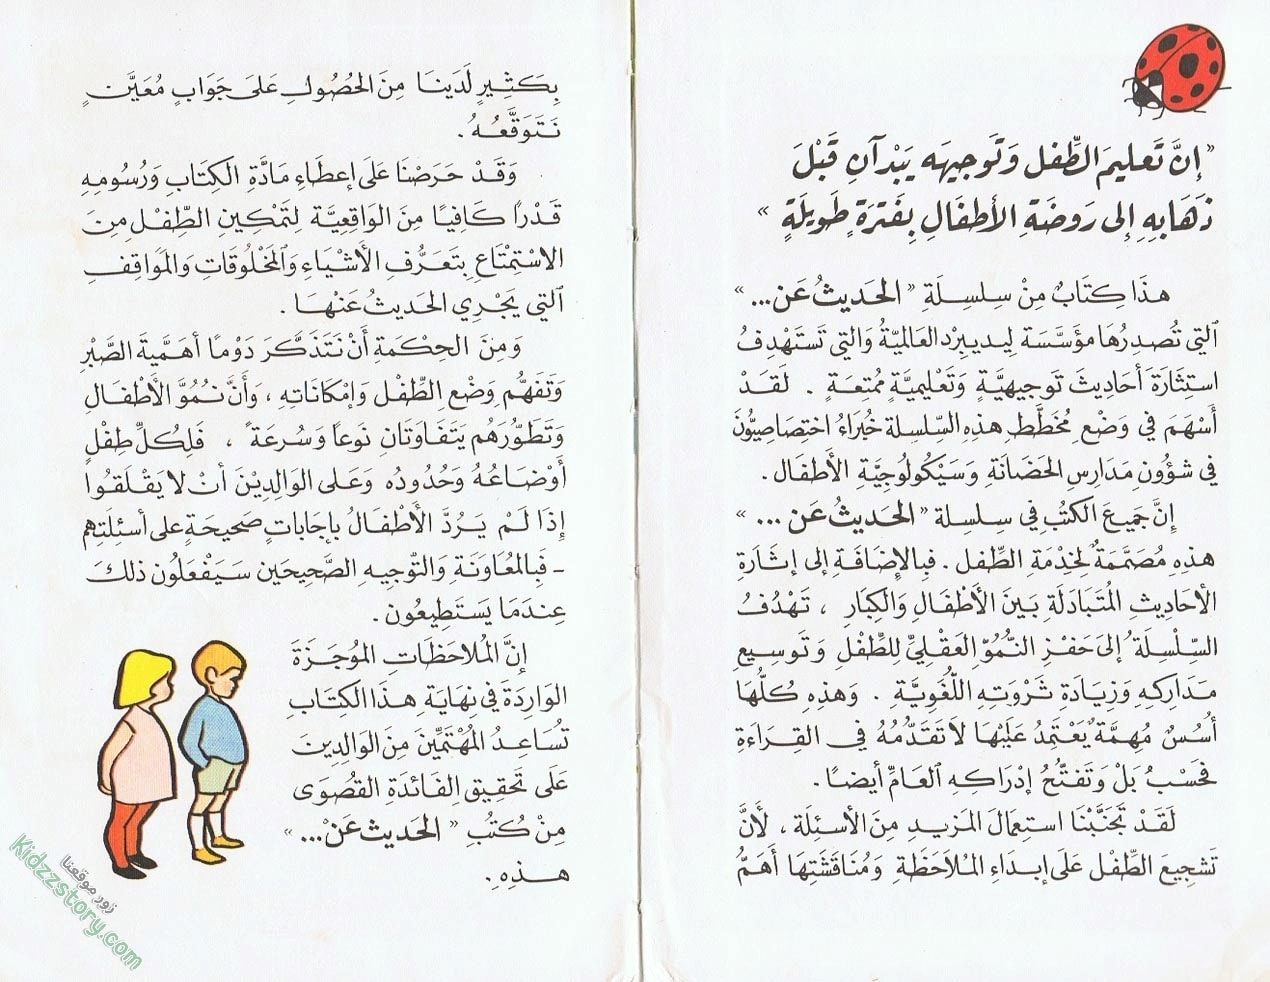 « إِنَّ تَعليمَ الطِّفل وَتَوجيهَه يَبْدآنِ قَبْلَ
ذَهَابِهِ إِلى رَوضَةِ الأَطفَالِ بِفَترَةٍ طَويلَةٍ »
هذَا كِتَابٌ مِنْ سِلسِلَةِ « الحَديثُ عَن... »
الّتي تُصدِرُهَا مؤَسَّسَة لِيديبِرد العَالميّةُ وَالتي تَستَهْدِفُ
استِثَارَة أحَاديثَ تَوجيهيَّةٍ وَتَعْليميَّةٍ مُمتعَةٍ . لَقَدْ
أَسْهَمَ في وَضْعِ مُخَطَّطِ هذِه السِّلسِلة خُبَراءُ اختصَاصيُّونَ
في شؤُونِ مَدَارِسِ الحَضَانَةِ وَسَيكُولُوجِيَّةِ الأَطفَال .
إِنَّ جَميعَ الكتُبِ في سِلسِلة « الحَديثُ عَن ... »
هذِهِ مُصَمَّمَةٌ لخِدْمَةِ الطِّفل . فبِالإِضَافَةِ إلى إثَارَةِ
الأَحَاديثِ المُتبَادَلَةِ بَينَ الأَطْفَالِ وَالكِبَارِ ، تَهْدُفُ
السِّلْسِلَةُ إلىَ حَفْزِ النُّمُوِّ العَقْليِّ للطِّفْلِ وَتَوسِيعِ
مَدَارِكِهِ وَزِيَادَةِ ثَرْوَتِهِ اللّغَويَّةِ . وَهذِهِ كُلُّهَا
أُسُسٌ مُهِمَّةٌ يَعْتَمِدُ عَلَيْهَا لاَ تَقَدُّمُهُ في القِرَاءَةِ
فَحَسْبُ بَلْ وَتَفتُّحُ إدْرَاكِهِ العَامِّ أيضًا .
لَقَدْ تَجَنَّبْنَا استِعمَالَ المَزيدِ مِنَ الأسئِلَةِ ، لأَنَّ
تَشجِيعَ الطِّفْلِ عَلى إبدَاءِ المُلاَحَظَةِ وَمُنَاقَشَتِهَا أهَمُّ
بِكَثيرٍ لَدَينَا مِنَ الحُصُولِ عَلىَ جَوَابٍ مُعَيَّنٍ
نَتَوَقَّعُهُ .
وَقَدْ حَرَصْنَا عَلىَ إعطَاءِ مَادَّةِ الكِتَابِ وَرُسُومِهِ
قَدْرًا كَافيًا مِنَ الوَاقِعِيَّةِ لِتَمْكينِ الطِّفْلِ مِنَ
الاسْتِمْتَاعِ بِتَعَرُّفِ الأشْيَاءِ وَالمَخْلُوقَاتِ وَالمَوَاقِفِ
الّتي يَجْرِي الحَديثُ عَنْهَا .
وَمِنَ الحِكْمَةِ أنْ نَتَذَكَّرَ دَوْمًا أهَمّيَةَ الصَّبْرِ
وَتَفَهُّمِ وَضْعِ الطِّفْل وَإمْكَانَاتِهِ ، وَأنَّ نُمُوَّ الأَطْفَالِ
وَتَطَوُّرَهُم يَتَفَاوَتَانِ نَوعًا وَسُرعَةً ، فَلِكُلِّ طِفْلٍ
أوْضَاعُهُ وَحُدُودُه وَعَلى الوَالِدِيْنَ أنْ لا يَقْلَقُوا
إذَا لَمْ يَرُدَّ الأَطْفَالُ بِإجَابَاتٍ صَحِيحَةٍ عَلى أسئِلَتِهِم
- فَبِالمُعَاوَنَةِ وَالتّوْجيهِ الصَّحيحَين سَيَفْعَلُون ذلكَ
عِندَمَا يَسْتَطِيعُون .
إنَّ المُلاحَظَاتِ المُوجَزَةَ
الوَارِدَةَ في نِهَايَةِ هذَا الكِتَابِ
تُسَاعِدُ المُهْتَمِّينَ مِنَ الوَالِدِينَ
عَلىَ تَحقيقِ الفَائدَةِ القُصْوَى
مِنْ كُتُبِ « الحَديث عَنْ... »
هذِهِ .
زور موقعنا
Kidzzstory.com